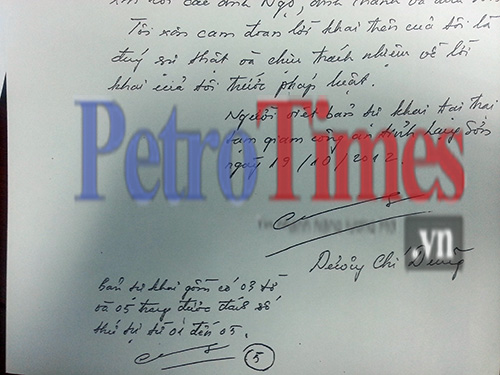 Tôi xin cam đoan lời khai trên của tôi là
đúng sự thật và chịu trách nhiệm về lời
khai của tôi trước pháp luật.
Người viết bản tự khai tại trại
tạm giam công an tỉnh Lạng Sơn
ngày 19/10/2012.
PetroTimes
.vn
Dương Chí Dũng
bản tự khai gồm có 03 tờ
và 05 trang được đánh số
thứ tự từ 01 đến 05.
5